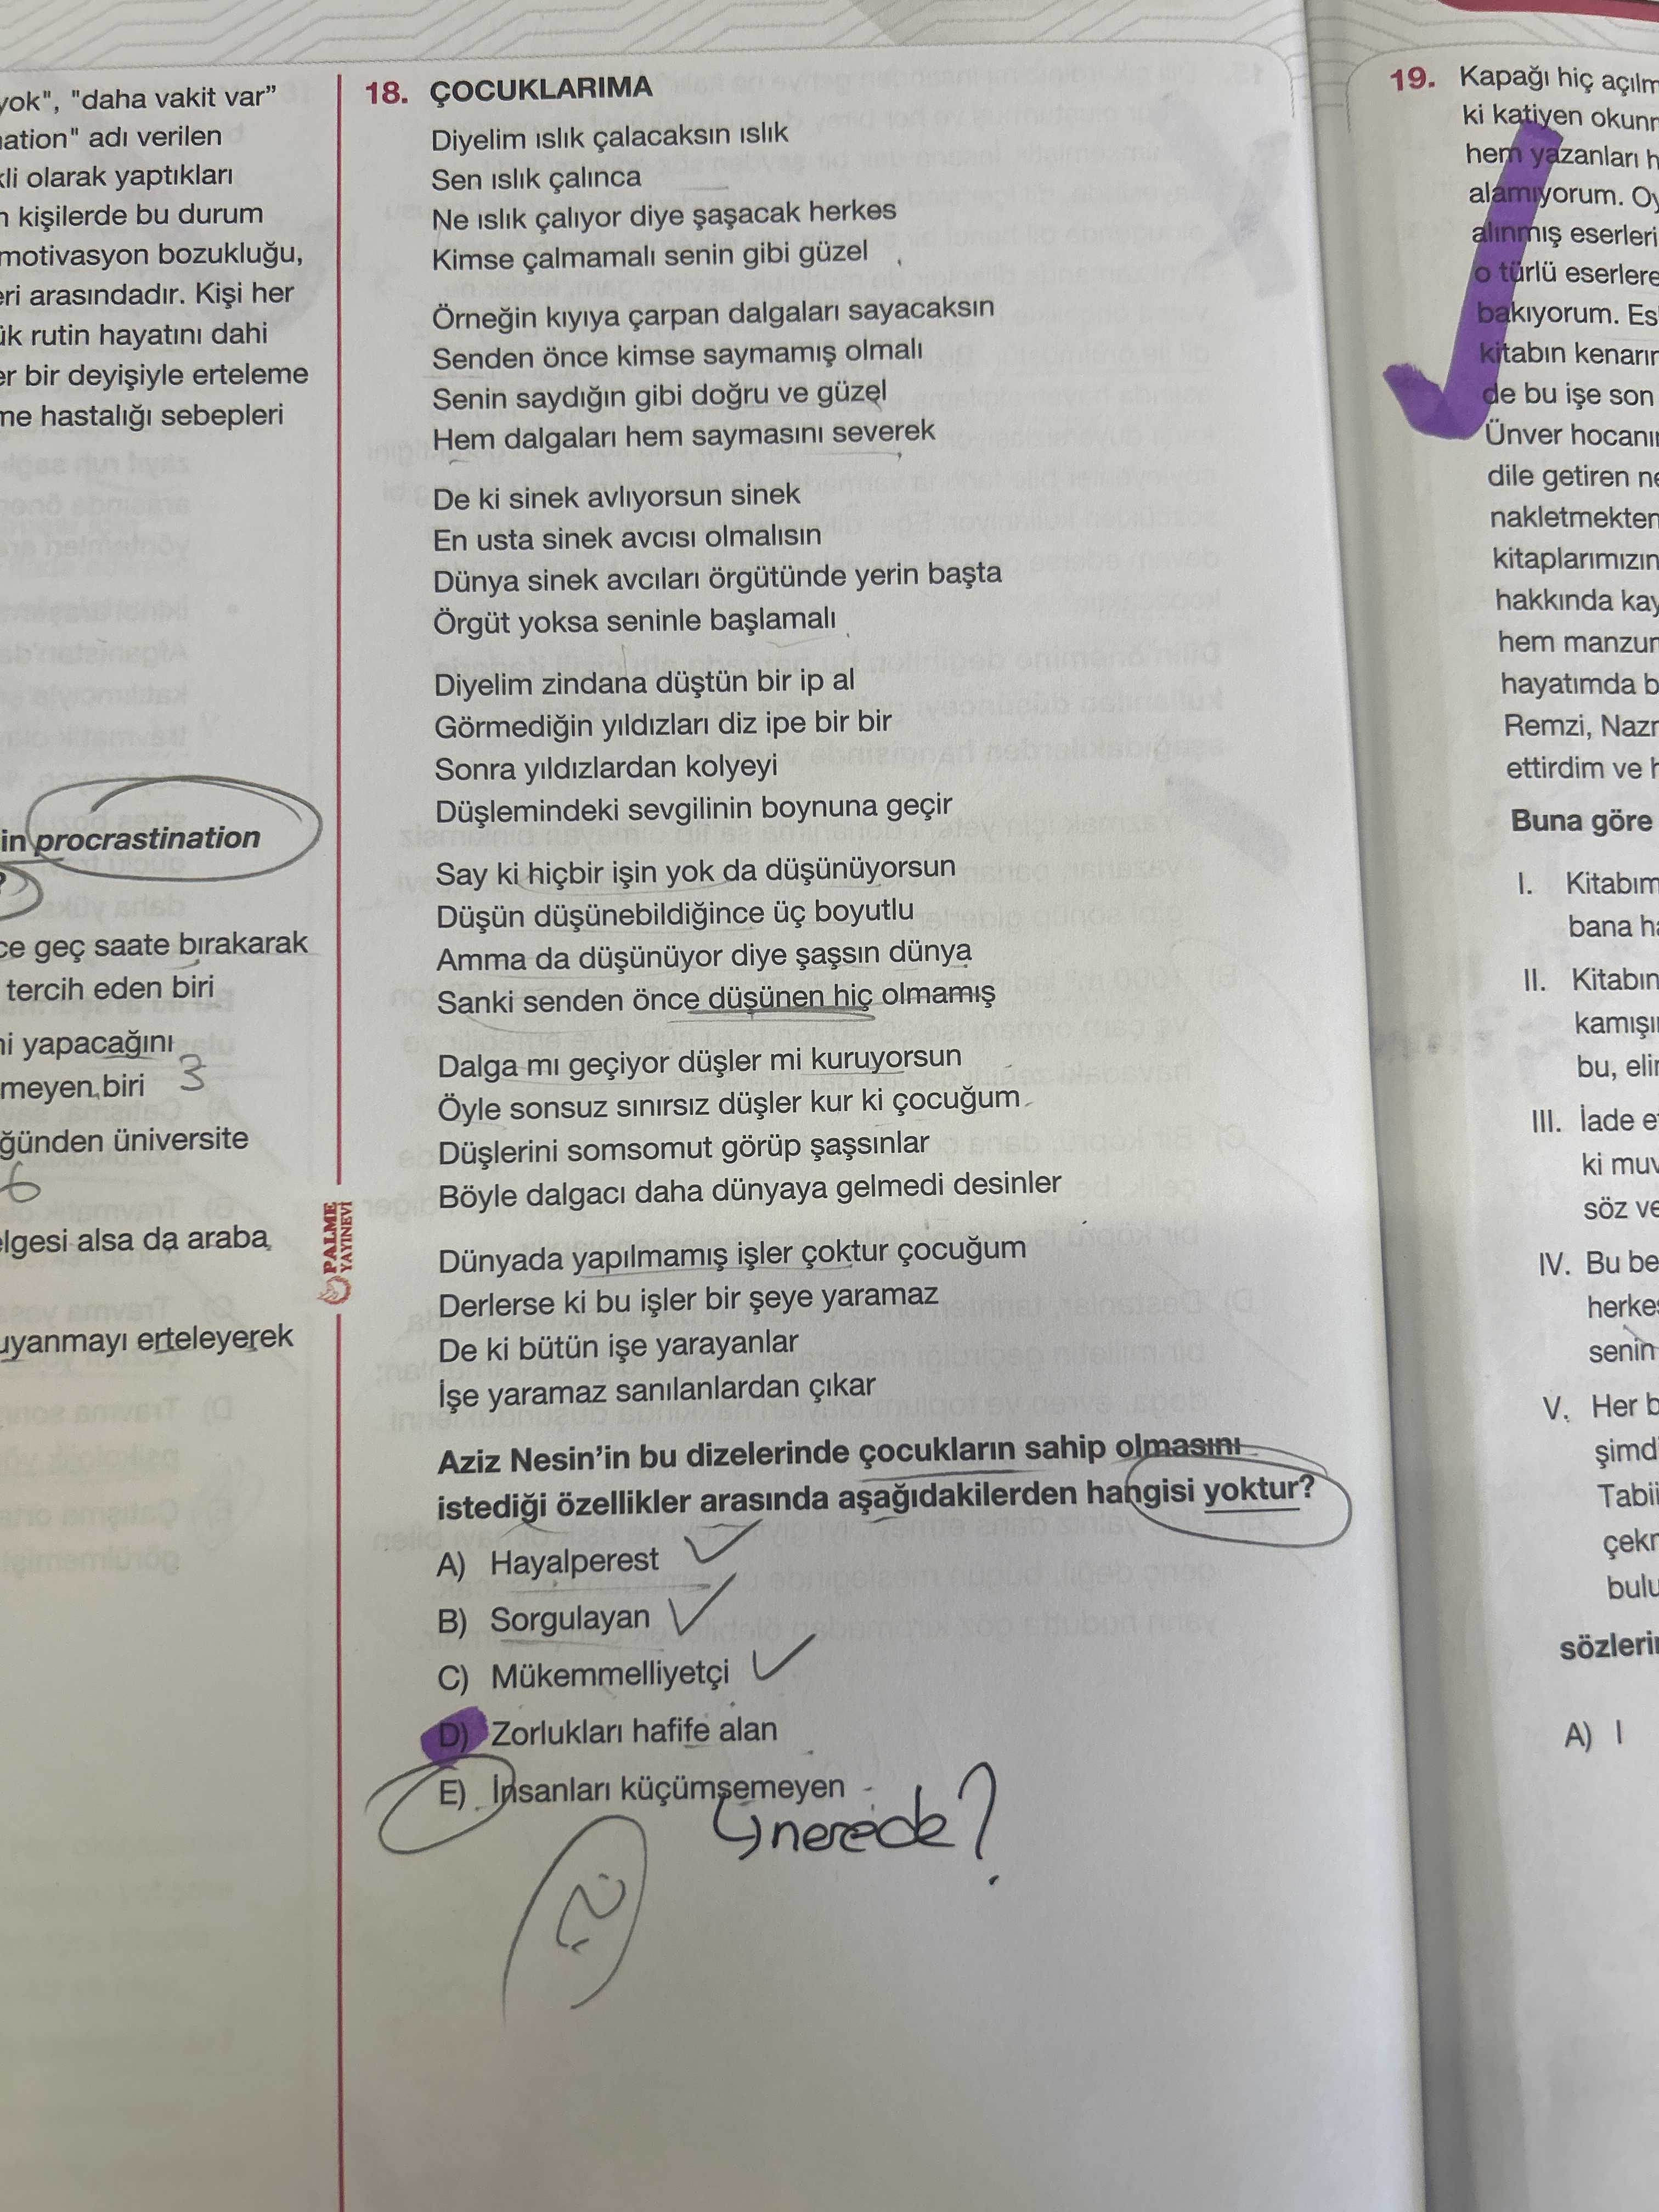 yok", "daha vakit var”
nation" adı verilen
kli olarak yaptıkları
n kişilerde bu durum
motivasyon bozukluğu,
eri arasındadır. Kişi her
ük rutin hayatını dahi
er bir deyişiyle erteleme
me hastalığı sebepleri
in procrastination
?
ce geç saate bırakarak
tercih eden biri
ni yapacağını
meyen biri 3
ğünden üniversite
6
elgesi alsa da araba
uyanmayı erteleyerek
PALME
YAYINEVİ
18. ÇOCUKLARIMA
Diyelim ıslık çalacaksın ıslık
Sen ıslık çalınca
Ne ıslık çalıyor diye şaşacak herkes
Kimse çalmamalı senin gibi güzel
Örneğin kıyıya çarpan dalgaları sayacaksın
Senden önce kimse saymamış olmalı
Senin saydığın gibi doğru ve güzel
Hem dalgaları hem saymasını severek
De ki sinek avlıyorsun sinek
En usta sinek avcısı olmalısın
Dünya sinek avcıları örgütünde yerin başta
Örgüt yoksa seninle başlamalı
Diyelim zindana düştün bir ip al
Görmediğin yıldızları diz ipe bir bir
Sonra yıldızlardan kolyeyi
Düşlemindeki sevgilinin boynuna geçir
Say ki hiçbir işin yok da düşünüyorsun
Düşün düşünebildiğince üç boyutlu
Amma da düşünüyor diye şaşsın dünya
Sanki senden önce düşünen hiç olmamış
Dalga mı geçiyor düşler mi kuruyorsun
Öyle sonsuz sınırsız düşler kur ki çocuğum
Düşlerini somsomut görüp şaşsınlar
Böyle dalgacı daha dünyaya gelmedi desinler
Dünyada yapılmamış işler çoktur çocuğum
Derlerse ki bu işler bir şeye yaramaz
De ki bütün işe yarayanlar
İşe yaramaz sanılanlardan çıkar
Aziz Nesin’in bu dizelerinde çocukların sahip olmasını
istediği özellikler arasında aşağıdakilerden hangisi yoktur?
A) Hayalperest
B) Sorgulayan
C) Mükemmelliyetçi
D) Zorlukları hafife alan
E) İnsanları küçümsemeyen
nerede?
19. Kapağı hiç açılm
ki katiyen okunr
hem yazanları h
alamıyorum. Oy
alınmış eserleri
o türlü eserlere
bakıyorum. Es
kitabın kenarır
de bu işe son
Ünver hocanır
dile getiren ne
nakletmekten
kitaplarımızın
hakkında kay
hem manzur
hayatımda b
Remzi, Nazr
ettirdim ve h
Buna göre
I. Kitabım
bana ha
II. Kitabın
kamışır
bu, elir
III. İade e
ki muv
söz ve
IV. Bu be
herkes
senin
V. Her b
şimd
Tabii
çekr
bulu
sözleri
A) I